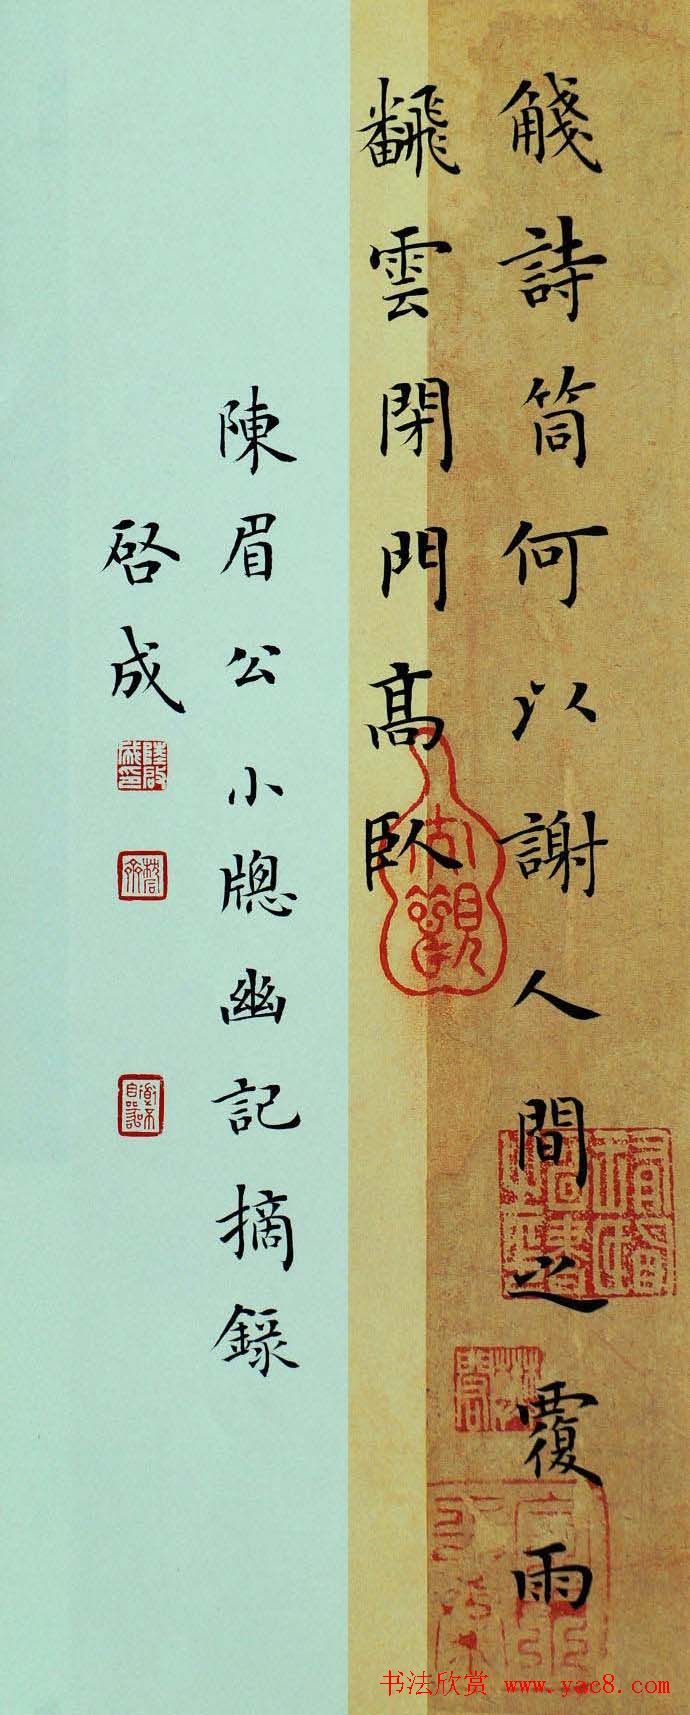 觴詩筒何以謝人間之覆雨
飜雲閉門高臥
陳眉公小牎幽記摘錄
啓成
书法欣赏 www.yac8.com